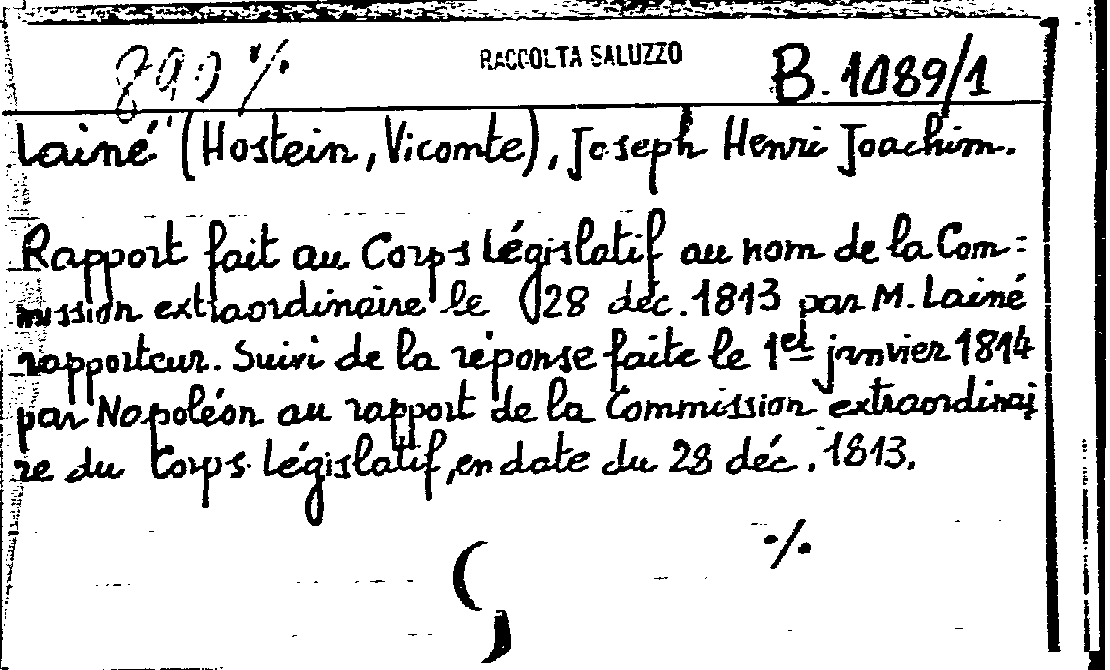 899 ./. RACCOLTA SALUZZO B.1089/1
Lainé (Hostein, Vicomte), Joseph Henri Joachim.
Rapport fait au Corps Législatif au nom de la Com=
mission extraordinaire le 28 déc. 1813 par M. Lainé
rapporteur. Suivi de la réponse faite le 1er janvier 1814
par Napoléon au rapport de la Commission extraordinai
re du Corps Législatif, en date du 28 déc. 1813.
./.